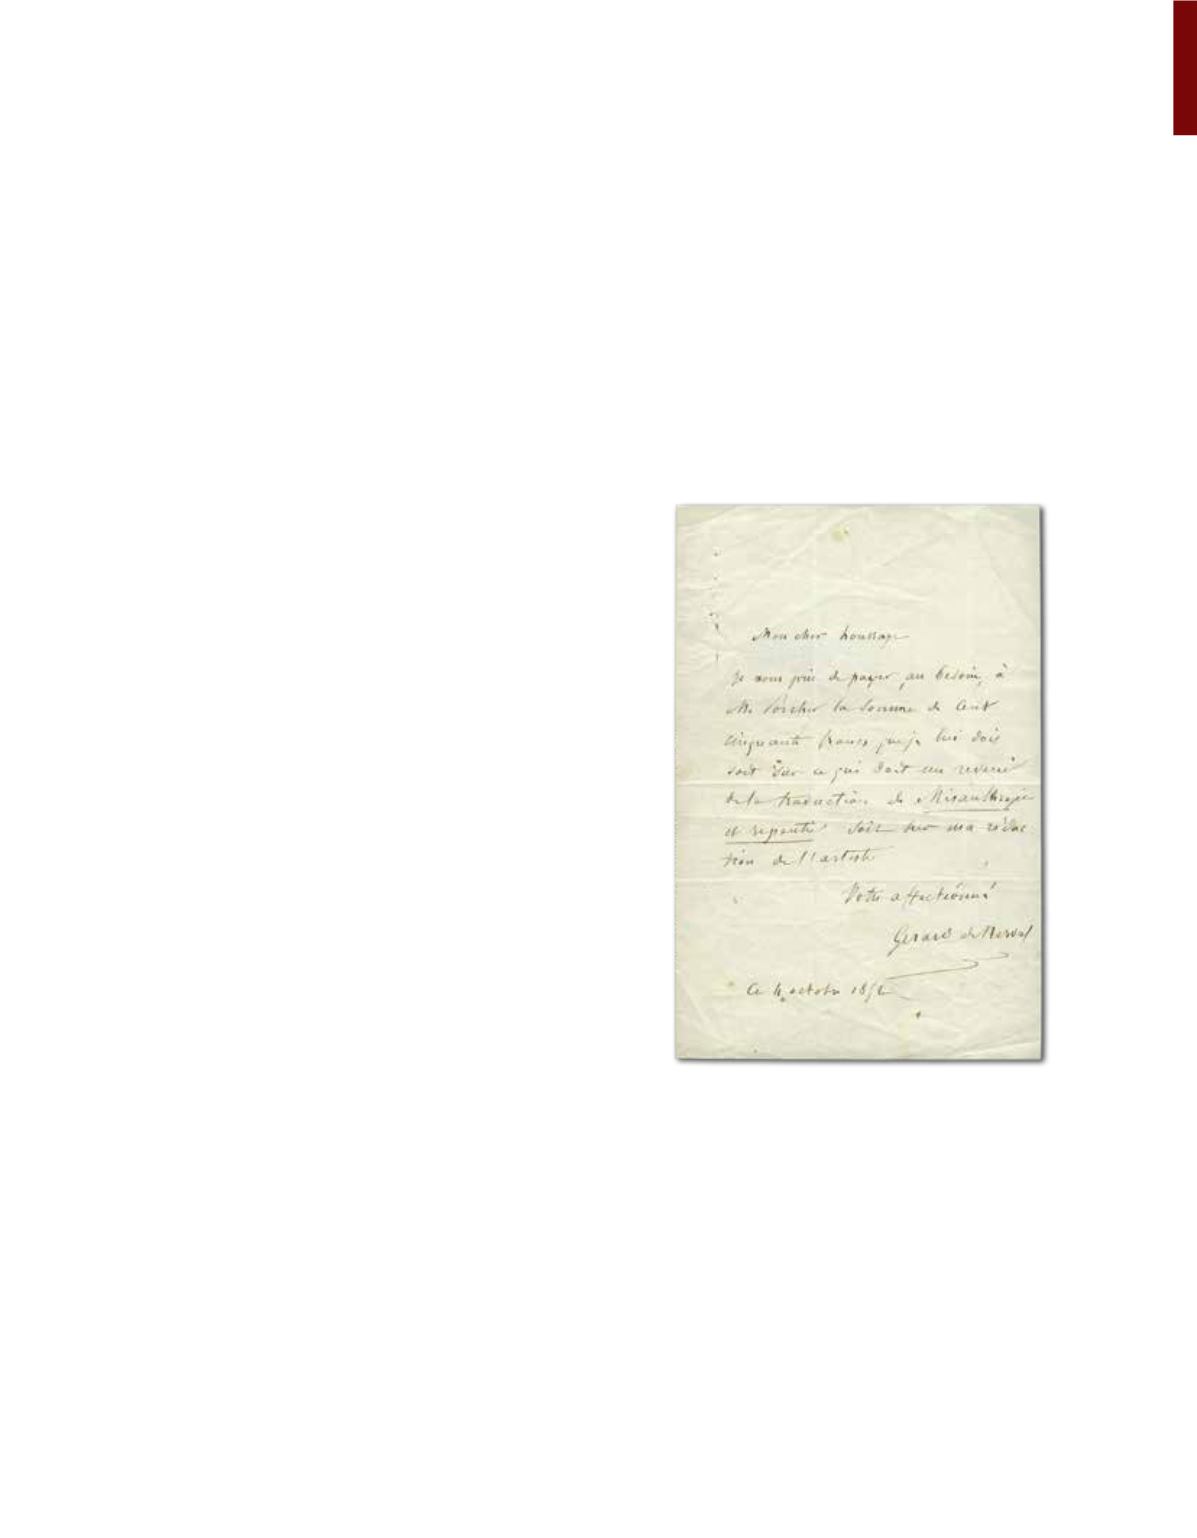 Mon cher houssaye
je vous prie de payer, au besoin, à
M. Porcher la somme de Cent
cinquante francs que je lui dois
soit sur ce qui doit me revenir
de la traduction de Misanthropie
et repentir soit sur ma rédac
tion de l'artiste
Votre affectionné
Gérard de Nerval
Ce 4 octobre 1852